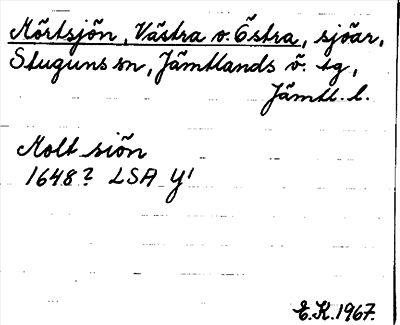 Mörtsjön, Västra o. Östra, sjöar,
Stuguns sn, Jämtlands ö. tg,
Jämtl. l.
Molt siön
1648? LSA Y'
E.K. 1967.